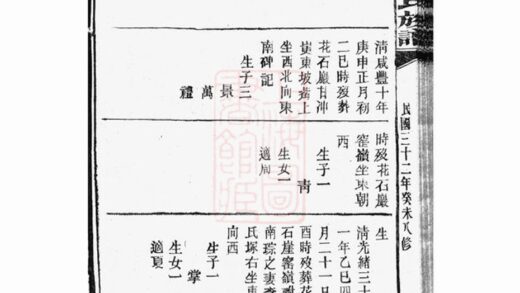 氏族譜
民國三十二年癸未八修
清咸豐十年
庚申正月初
二巳時歿葬
花石巖甘沖
東坡上
坐西北向東
南碑記
生子三
景
萬
禮
時歿花石巖
窰嶺坐東朝
西
生子一
青
生女一
適周
生
清光緒三十
一年乙巳四
月二十一日
酉時歿葬花
石崖窰嶺
南踪之妻李
氏塚右坐東
向西
生子一
掌
生女一
適夏